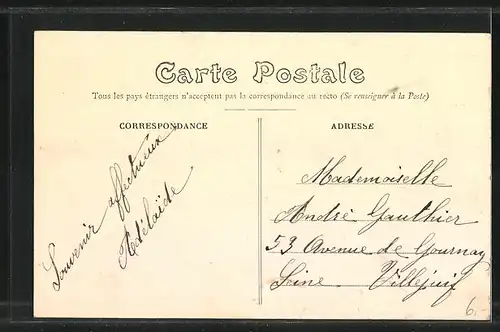 Carte Postale
Tous les pays étrangers n'acceptent pas la correspondance au recto (Se renseigner à la Poste)
CORRESPONDANCE
Souvenir affectueux
Adélaïde
ADRESSE
Mademoiselle
André Gauthier
53 Avenue de Gournay
Seine Villejuif
6.-